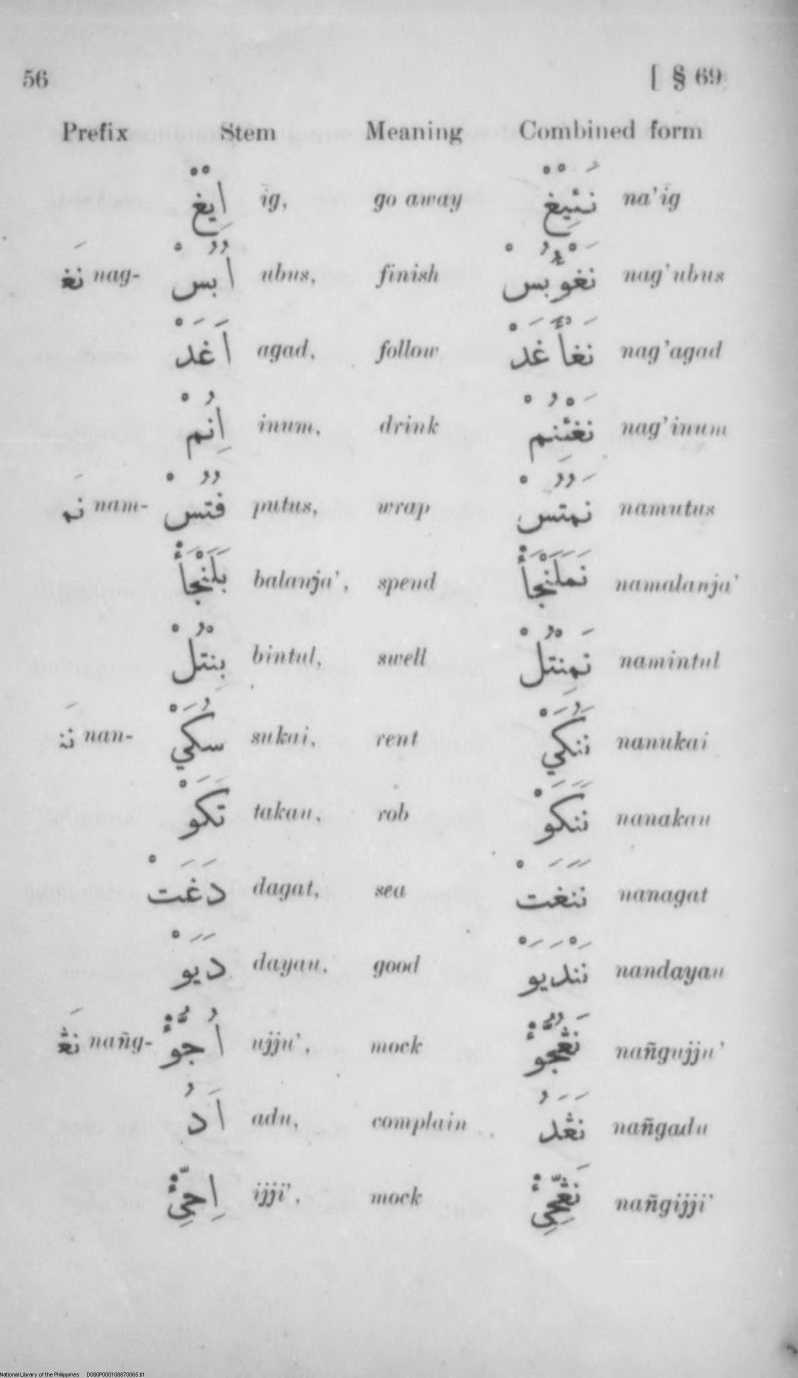 56 [ § 69
Prefix Stem Meaning Combined form
ايغ ig, go away نئيغ na'ig
نغ nag- ابس ubus, finish نغوبس nag'ubus
اغد agad, follow نغأغد nag'agad
انم inum, drink نغئنم nag'inum
نم nam- فتس putus, wrap نمتس namutus
بلنجأ balanja', spend نملنجأ namalanja'
بنتل bintul, swell نمنتل namintul
نن nan- سكي sukai, rent ننكي nanukai
تكو takau, rob ننكو nanakau
دغت dagat, sea ننغت nanagat
ديو dayau, good ننديو nandayau
nañg- اجؤ ujju', mock nañgujju'
اد adu, complain nañgadu
ijji', mock nañgijji'
National Library of the Philippines